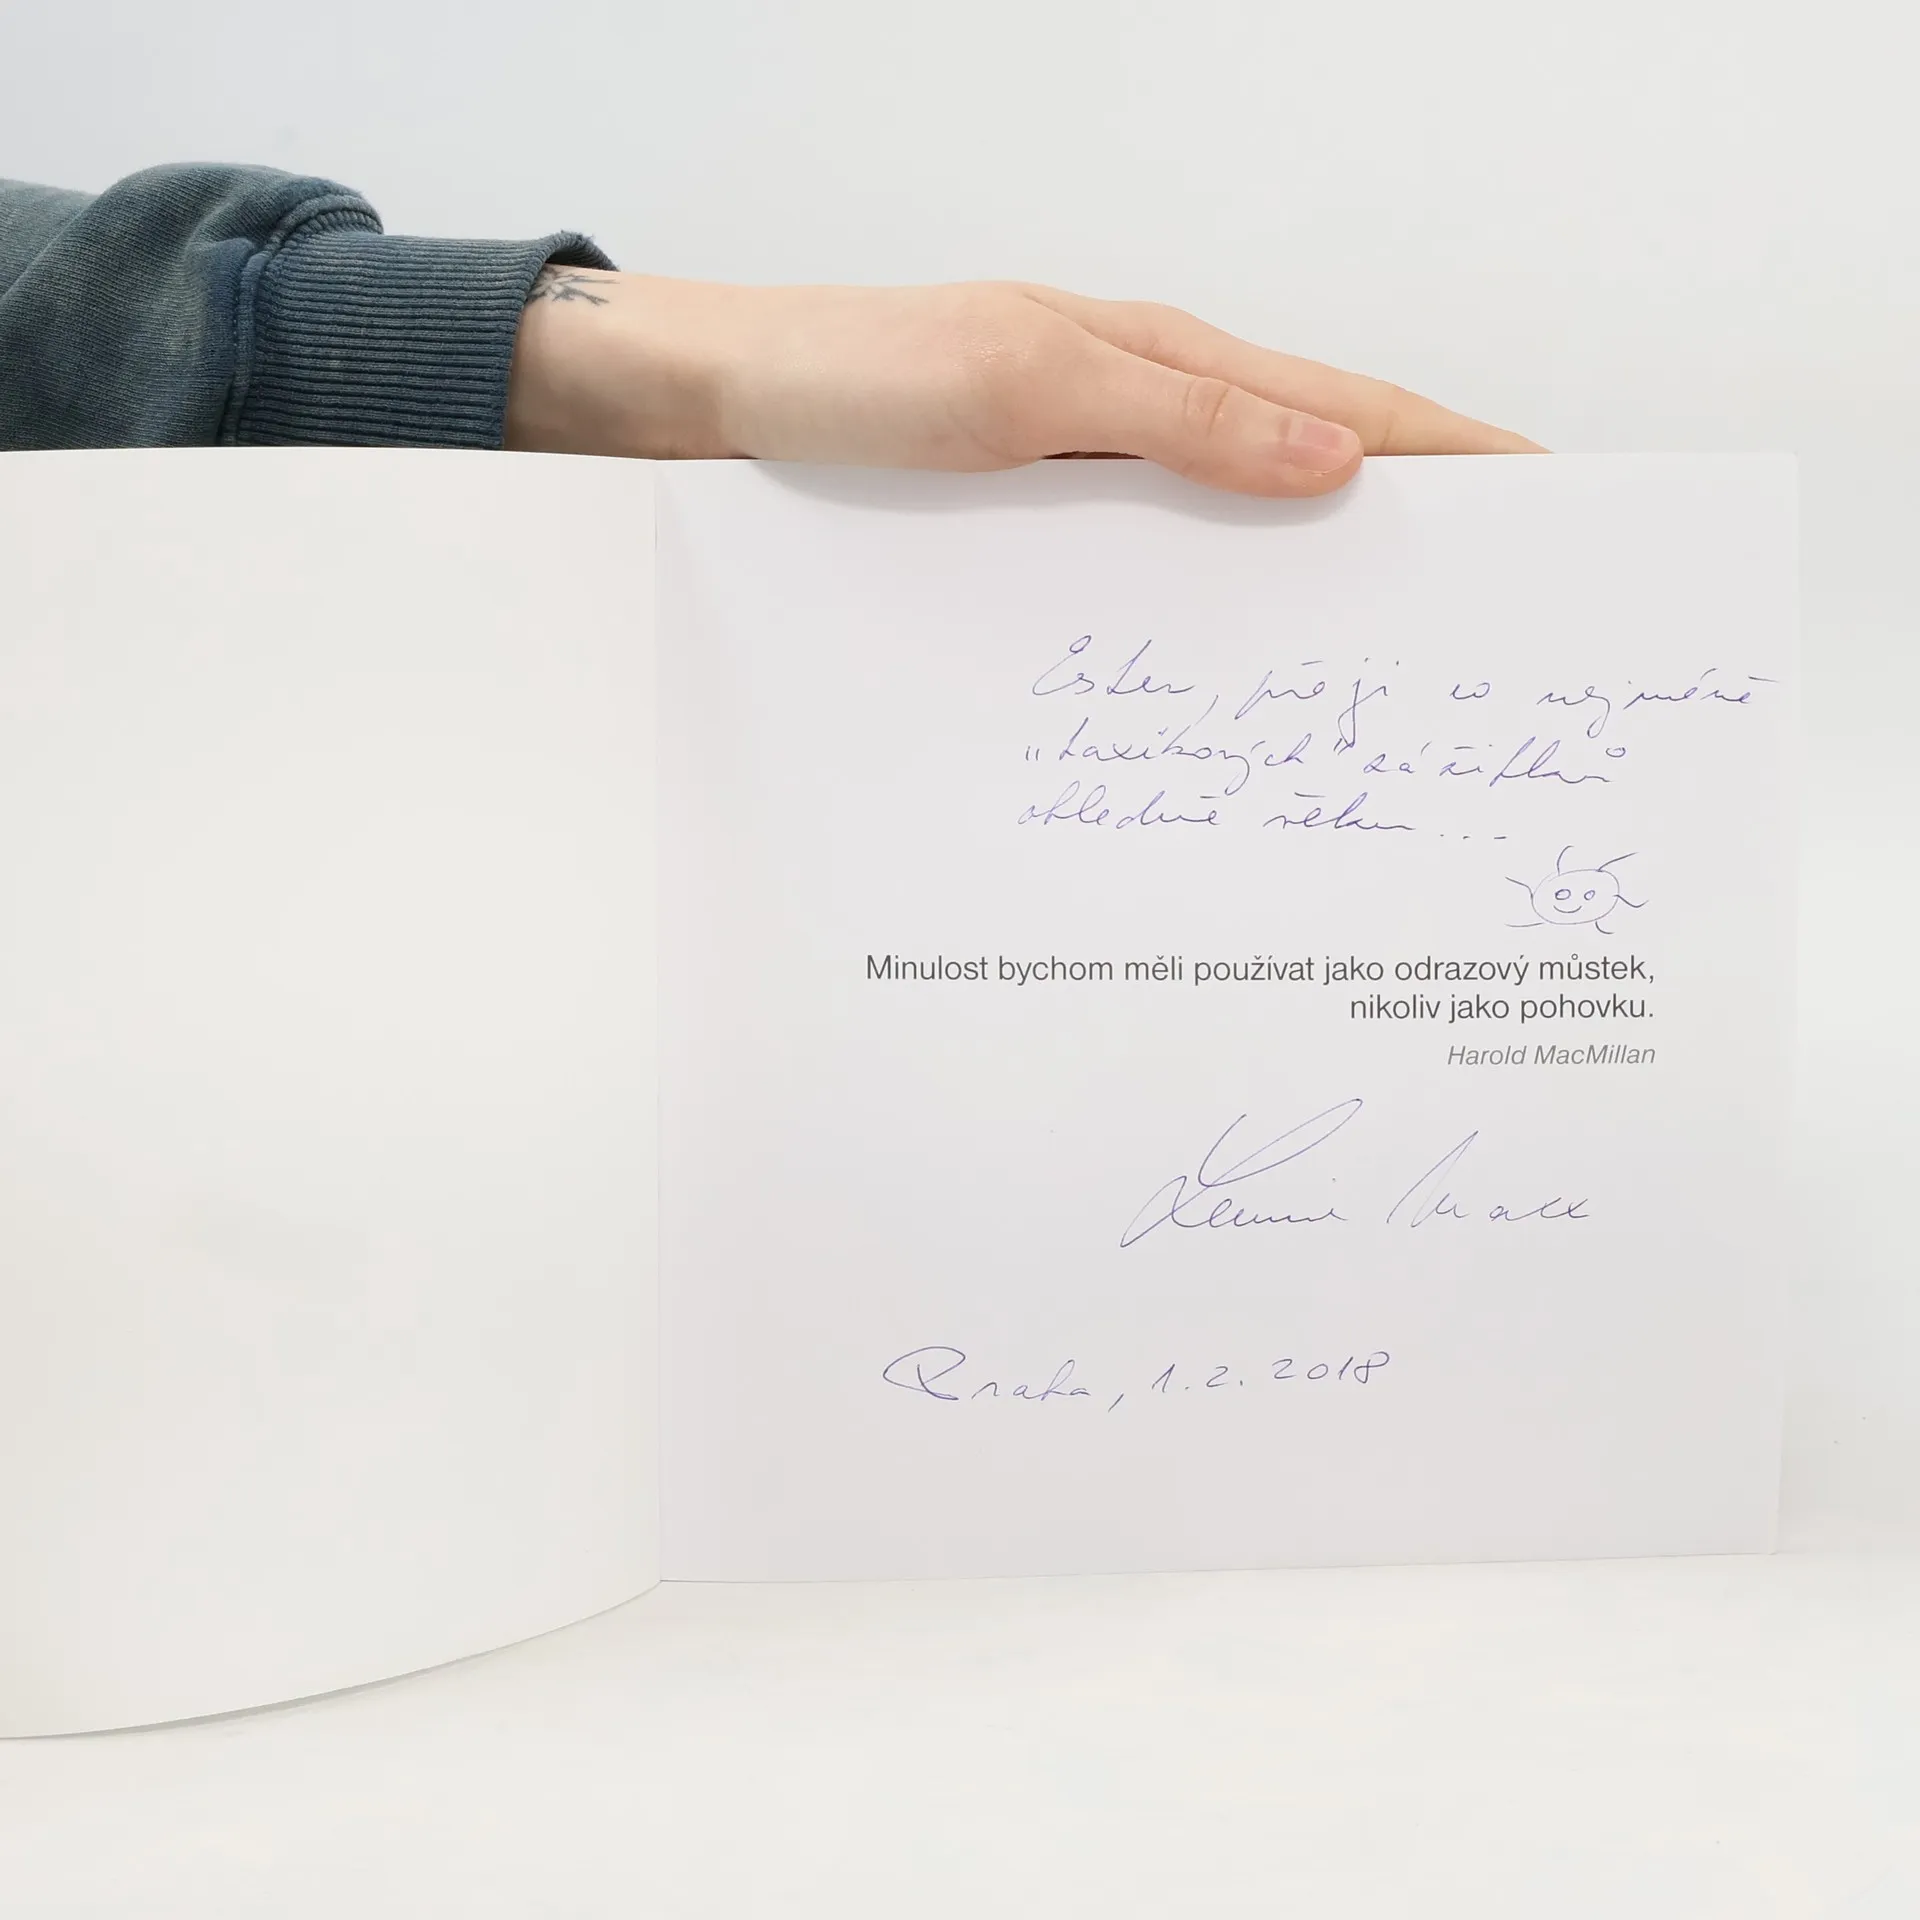 Ester, přeji co nejméně
"taxikových" zážitků
ohledně věku...
Minulost bychom měli používat jako odrazový můstek,
nikoliv jako pohovku.
Harold MacMillan
Praha, 1.2.2018